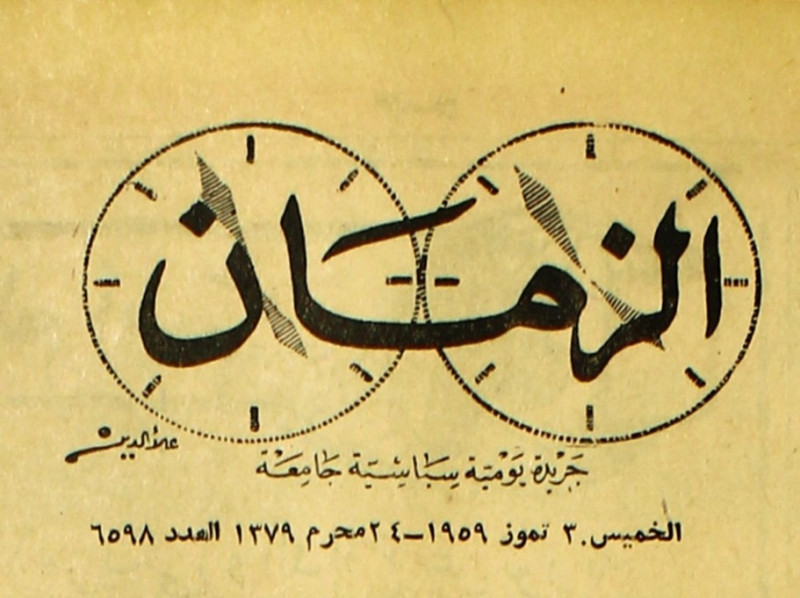 الزمان
علاءالدين
جريدة يومية سياسية جامعة
الخميس ٣٠ تموز ١٩٥٩-٢٤ محرم ١٣٧٩ العدد ٦٥٩٨